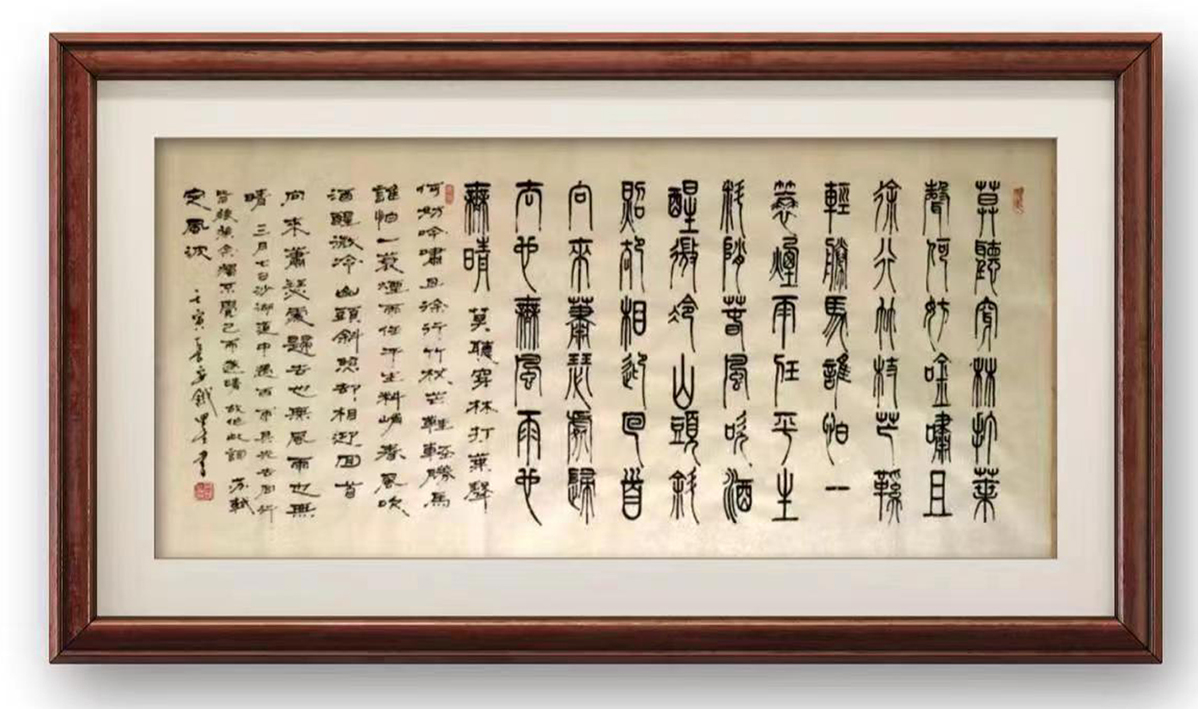 莫聽穿林打葉
聲何妨吟嘯且
徐行竹杖芒鞵
輕勝馬誰怕一
蓑煙雨任平生
料峭春風吹酒
醒微冷山頭斜
照却相迎回首
向來蕭瑟處歸
去也無風雨也
無晴 莫聽穿林打葉聲
何妨吟嘯且徐行竹杖芒鞋輕勝馬
誰怕一蓑煙雨任平生料峭春風吹
酒醒微冷山頭斜照却相迎回首
向來蕭瑟處歸去也無風雨也無
晴 三月七日沙湖道中遇雨雨具先去同行
皆狼狽余獨不覺已而遂晴故作此詞 蘇軾
定風波 壬寅春 書